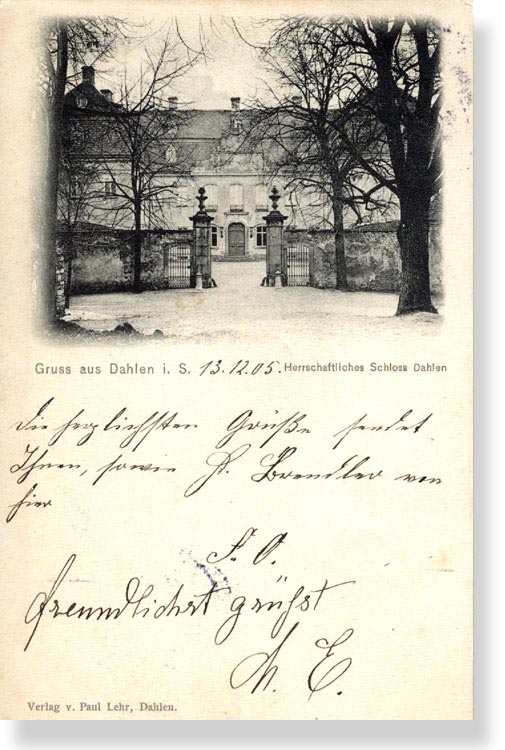 Gruss aus Dahlen i. S. 13.12.05. Herrschaftliches Schloss Dahlen
Die herzlichsten Grüße sendet
Ihnen, sowie H. Brendler von
hier
F. O.
Freundlichst grüßt
M. E.
Verlag v. Paul Lehr, Dahlen.